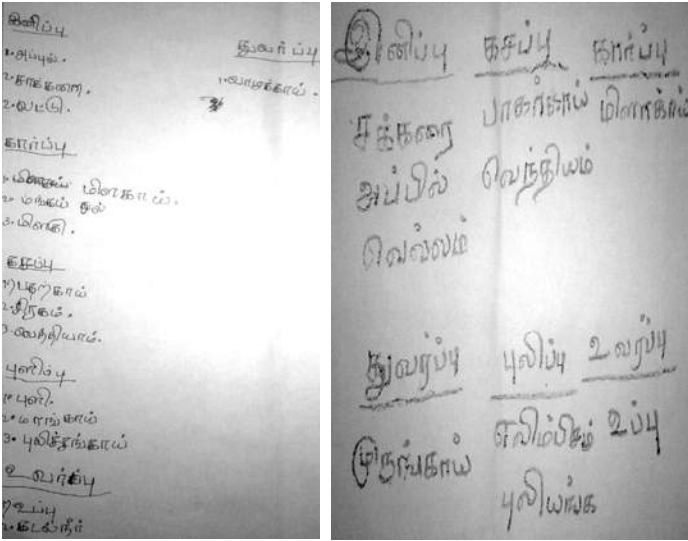 இனிப்பு
1. அப்புல்.
2. சாக்கரை.
2. லட்டு.
துவர்ப்பு
1. வாழக்காய்.
கார்ப்பு
மிளகாய்.
3. மிளகி.
கசப்பு
1) பதற்காய்
2. சிரகம்.
3. வெத்தியாம்.
புளிப்பு
1. புளி.
2. மாங்காய்
3. புலிச்சங்காய்
உவர்ப்பு
1) உப்பு
2. கடல்நீர்
இனிப்பு கசப்பு கார்ப்பு
சக்கரை பாகற்காய் மிளாகாய்
அப்பில் வெந்தியம்
வெல்லம்
துவர்ப்பு புலிப்பு உவர்ப்பு
முருங்காய் எலிம்பிசம் உப்பு
புலியங்க